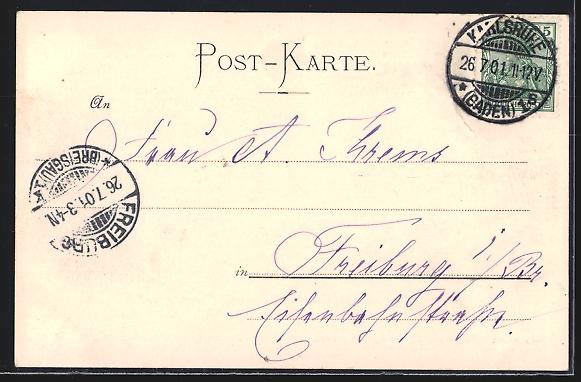 POST-KARTE.
KARLSRUHE
5
26.7.01.11-12V
*(BADEN)
An
Frau A. Krems
*(BREISGAU)1*
26.7.01.3-4N
FREIBURG
in Freiburg i/Br.
Eisenbahnstraße.